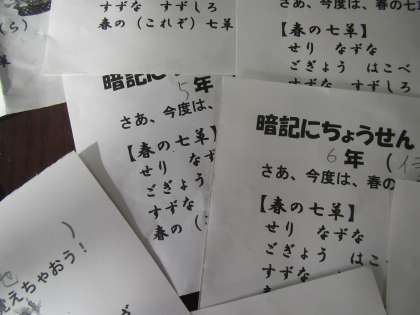 すずな すずしろ
春の（これぞ）七草
さあ、今度は、春の七
【春の七草】
せり なずな
ごぎょう はこべ
すずな すずしろ
暗記にちょう
5年
さあ、今度は、
【春の七草】
せり なず
ごぎょう
すずな
春の（
暗記にちょうせん
6年（
さあ、今度は、春の
【春の七草】
せり なずな
ごぎょう はこ
すずな
えちゃおう！